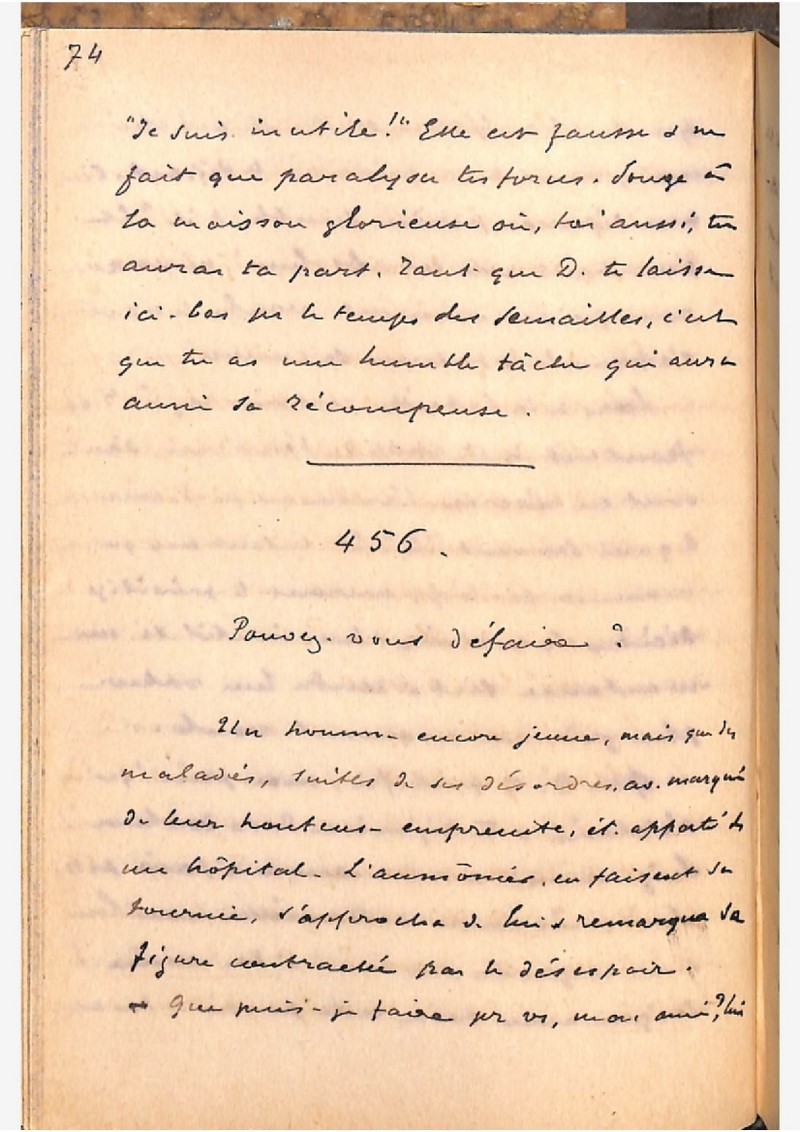 74
"Je suis inutile!" Elle est fausse & ne
fait que paralyser tes forces. Songe à
la moisson glorieuse où, toi aussi, tu
auras ta part. Tant que D. te laisse
ici-bas pr le temps des semailles, c'est
que tu as une humble tâche qui aura
aussi sa récompense.
456.
Pouvez-vous défaire?
Un homme encore jeune, mais que des
maladies, suites de ses désordres, av. marqué
de leur honteuse empreinte, ét. apporté ds
un hôpital. L'aumônier, en faisant sa
tournée, s'approcha de lui & remarqua sa
figure contractée par le désespoir.
— Que puis-je faire pr vs, mon ami?, lui